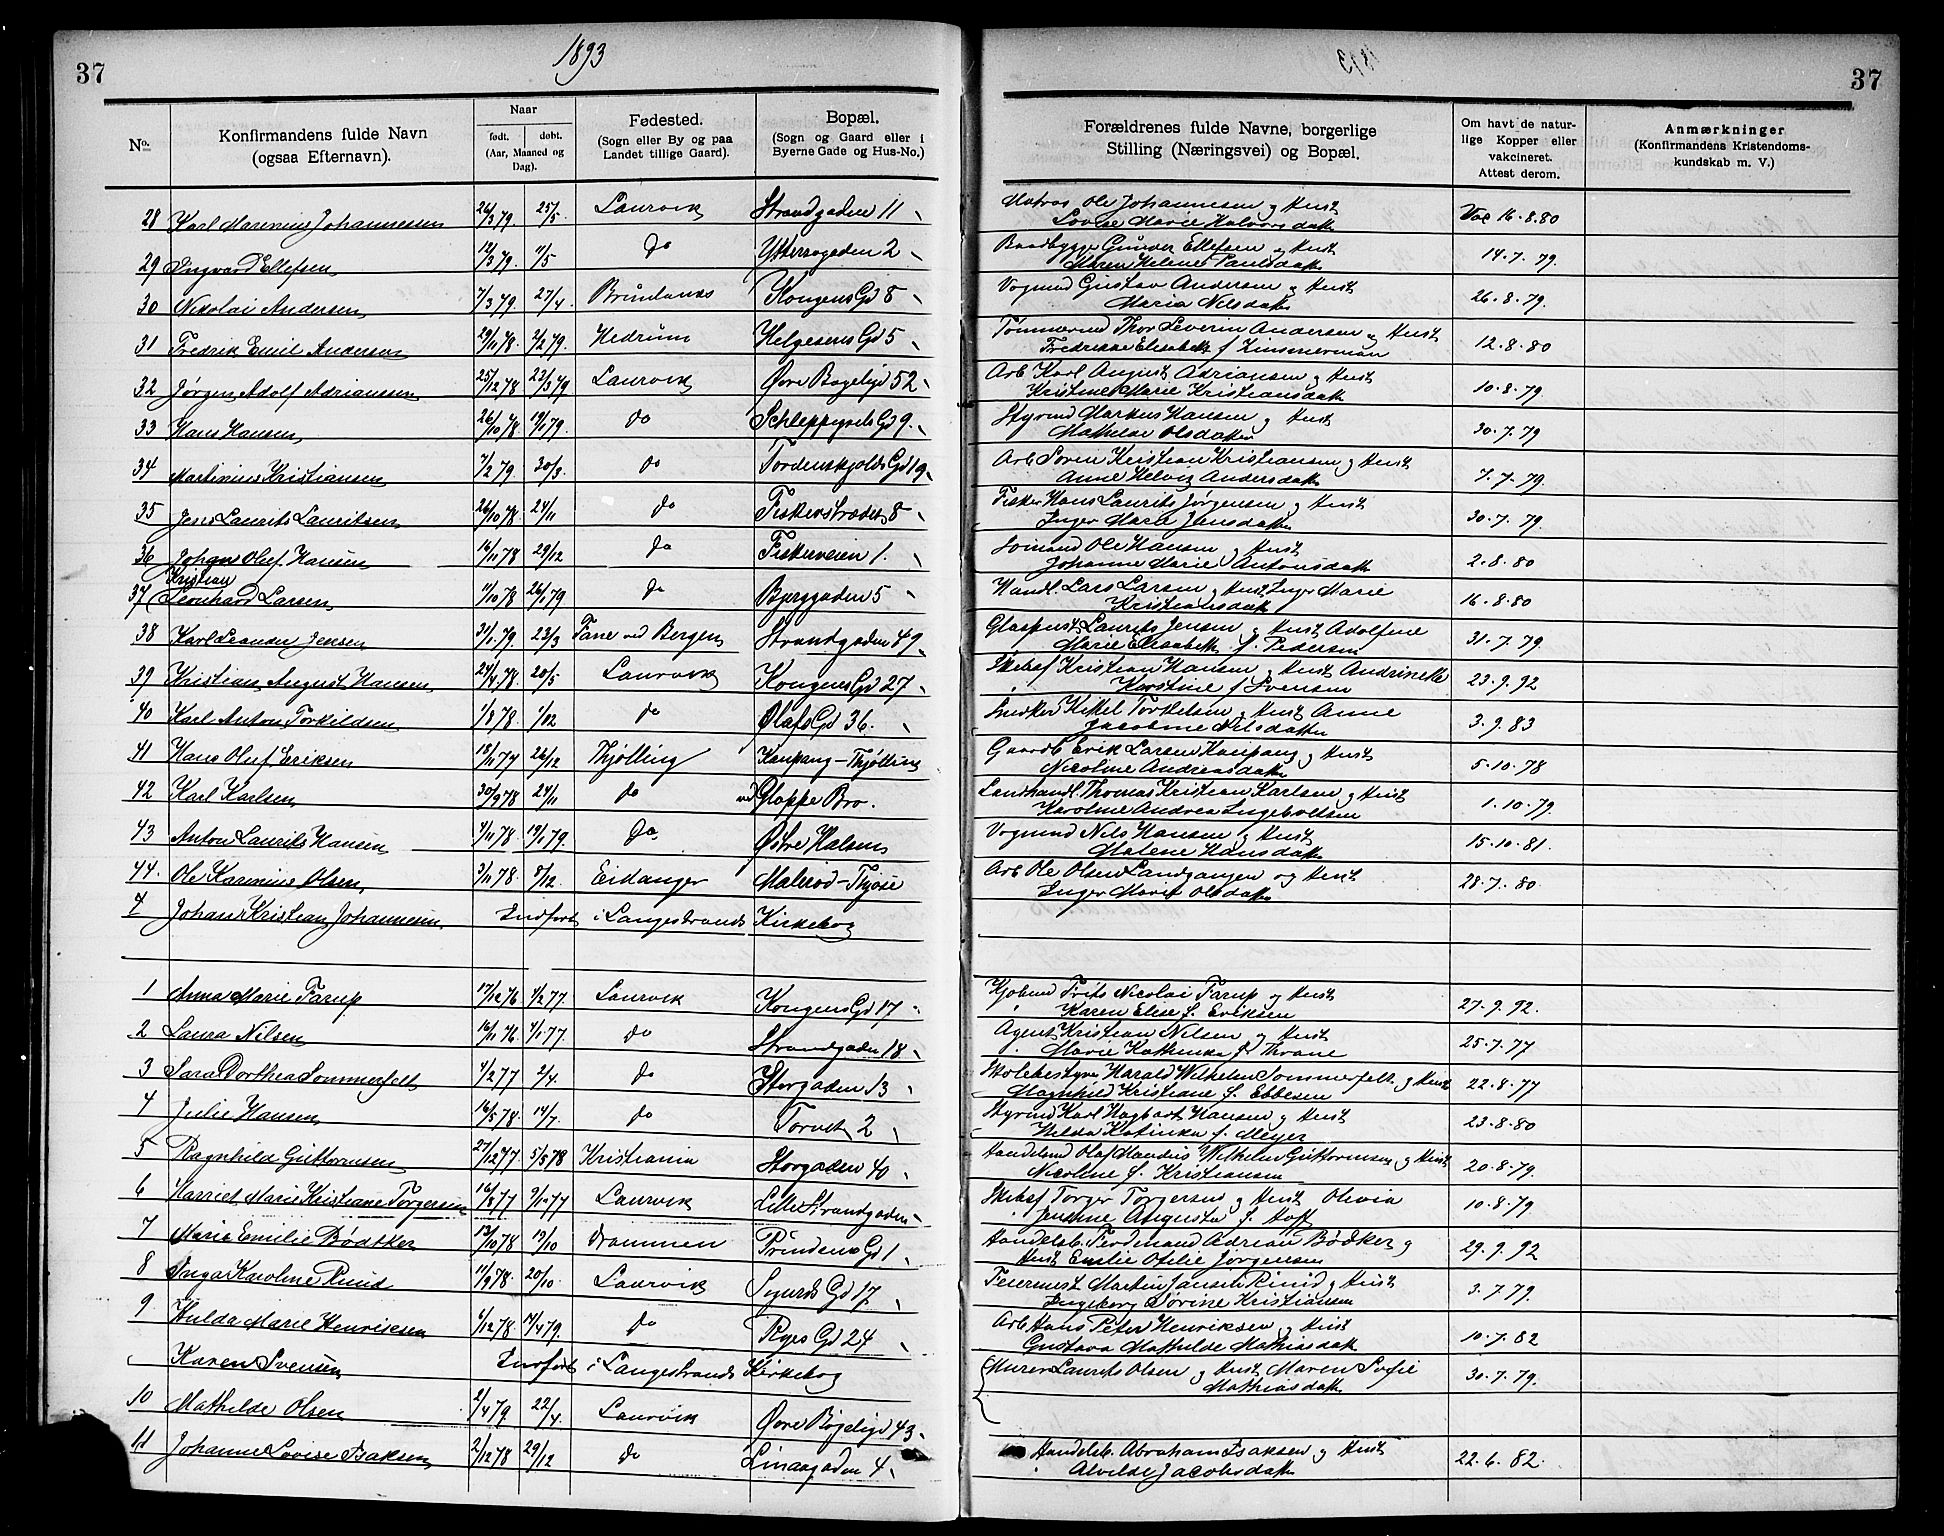 37
1893
37
No.
Konfirmandens fulde Navn
(ogsaa Efternavn).
Naar
født.
døbt.
(Aar, Maaned og
Dag).
Fødested.
(Sogn eller By og paa
Landet tillige Gaard).
Bopæl.
(Sogn og Gaard eller i
Byerne Gade og Hus-No.)
Forældrenes fulde Navne, borgerlige
Stilling (Næringsvei) og Bopæl.
Om havt de natur-
lige Kopper eller
vakcineret.
Attest derom.
Anmærkninger
(Konfirmandens Kristendoms-
kundskab m. V.)
28 Karl Marenius Johannessen 26/3 79. 25/5. Laurvik Strandgaden 11 Matros Ole Johannesen og Hust Vac 16.8.80
Lovise Marie Halvorsdatt
29 Ingvard Ellefsen 12/3 79. 11/5 do Ytterøgaden 2 Baadbygger Gunder Ellefsen og Hust 14.7.79.
Maren Helene Paulsdatt
30 Nikolai Andersen 7/3 79. 27/4 Brunlanæs Kongens Gd 8 Vognmd Gustav Andersen og Hust 26.8.79.
Maria Nilsdatt
31 Fredrik Emil Andersen 29/11 78. 2/2 79. Hedrum Helgesens Gd 5 Tømmermd Thor Severin Andersen og Hust 12.8.80
Fredrikke Elisabeth f Zimmerman
32 Jørgen Adolf Adriansen 25/12 78 23/3 79 Laurvik Øvre Bøgeligd 52 Arb Karl August Adriansen og Hust 10.8.79
Kristine Marie Kristiansdatt
33 Hans Hansen 26/10 78 19/1 79. do Schleppegrels Gd 9. Styrmd Markus Hansen og Hust 30.7.79
Mathilde Olsdatter
34 Martinius Kristiansen 7/2 79. 30/3. do Tordenskjolds Gd 19 Arb Søren Kristian Kristiansen og Hust 7.7.79.
Anne Helvig Andersdatt
35 Jens Laurits Lauritsen 26/10 78. 24/11 do Fiskerstrædet 8 Fisker Hans Laurits Jørgensen og Hust 30.7.79.
Inger Mara Jensdatt
36 Johan Oluf Hansen 16/11 78 29/12 do Fiskerveien 1. Sømand Ole Hansen og Hust 2.8.80
Johanne Marie Antonsdatt
Kristian
37 Leonhard Larsen 11/10 78 26/1 79 do Bjerggaden 5 Handl. Lars Larsen og Hust Inger Marie 16.8.80
Kristiansdatt
38 Karl Leander Jensen 31/1. 79. 23/3 Fane ved Bergen Strandgaden 49 Glaspust. Laurits Jensen og Hust Adolfine 31.7.79
Marie Elisabeth f. Pedersen
39 Kristian August Hansen 24/4 78. 20/5 Laurvik Kongens Gd 27 Skibsf Kristian Hansen og Hust Andrinette 23.9.92
Karstine f Svensen
40 Karl Anton Torkildsen 1/8 78. 1/12 do Olafs Gd 36. Snedker Kittel Torkelsen og Hust Anne 3.9.83
Jacobine Nilsdatter
41 Hans Oluf Eriksen 18/11 77 26/12 Thjølling Kaupang-Thjølling Gaardb Erik Larsen Kaupang og Hust 5.10.78
Nicoline Andreasdatt
42 Karl Karlsen 30/9 78 24/11 do ved Gloppe Bro. Landhandl. Thomas Kristian Karlsen og Hust 1.10.79.
Karoline Andrea Ingeboltsen
43 Anton Laurits Hansen 4/11 78 19/1 79. do Østre Halsen Vognmd Nils Hansen og Hust 15.10.81.
Malene Hansdatt
44. Ole Karenius Olsen 3/11 78. 8/12. Eidanger Malerød-Thjøse Arb Ole Olsen Landgangen og Hust 28.7.80.
Inger Marie Olsdatt
7 Johan Kristian Johannesen Indført i Langestrands Kirkebog
1 Anna Marie Farup 17/12 76 4/2 77. Laurvik Kongens Gd 17 Kjøbmd Frits Nicolai Farup og Hust 27.9.92.
Karen Elise f. Eriksen
2 Laura Nilsen 16/11 76 4/1 77 do Strandgaden 18. Agent Kristian Nilsen og Hust 25.7.77
Marie Kathinka f. Thrane
3 Sara Dorthea Sommerfelt 4/2 77 2/4. do Storgaden 13 Skolebestyrer Harald Wilhelm Sommerfelt og Hust 22.8.77
Magnhild Kristiane f. Ebbesen
4 Julie Hansen 16/5 78 14/7. do Torvet 2 Styrmd Karl Hagbart Hansen og Hust 23.8.80
Hilda Katinka f. Meyer
5 Ragnhild Guttormsen 27/12 77 5/5 78 Kristiania Storgaden 40 Handelsmd Olaf Mandius Wilhelm Guttormsen og Hust 20.8.79.
Nicoline f. Kristiansen
6 Harriet Marie Kristiane Torgersen 16/8 77 9/12 77 Laurvik Lille Strandgaden Skibsf Torger Torgersen og Hust Olivia 10.8.79.
Jensine Augusta f. Hoff
7 Marie Emilie Bødtker 13/10 78 19/10 Drammen Prindsens Gd 1 Handelsb. Ferdinand Adrian Bødker og 29.9.92
Hust Emilie Otilie Jørgensen
8 Inga Karoline Ruud 11/9 78. 20/10. Laurvik Sigurds Gd 17. Feiermest Martin Jansen Ruud og Hust 3.7.79.
Ingeborg Dorine Kristiansen
9 Hulda Marie Henriksen 6/12 78 14/4 79. do Ryes Gd 24 Arb Hans Peter Henriksen og Hust 10.7.82
Gustava Mathilde Mathiasdatt
Karen Svensen Indført i Langestrands Kirkebog
10 Mathilde Olsen 2/4 79. 22/4. Laurvik Øvre Bøgeligd 43 Murer Laurits Olsen og Hust Maren Sofie 30.7.79.
Mathiasdatt
11 Johanne Lovise Isaksen 2/12 78 29/12 do Linaagaden 4 Handelsb. Abraham Isaksen og Hust 22.6.82.
Alvilde Jacobsdatt